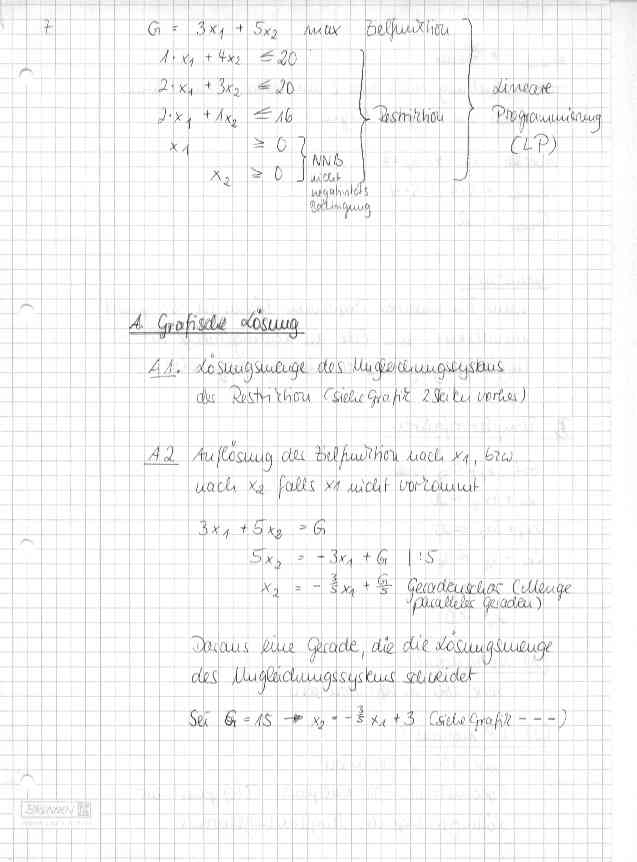 7
G = 3x₁ + 5x₂ max Zielfunktion
1·x₁ + 4x₂ ≤ 20
2·x₁ + 3x₂ ≤ 20
2·x₁ + 1x₂ ≤ 16
Restriktion
x₁ ≥ 0
x₂ ≥ 0
NNB
nicht
negativitäts
Bedingung
Lineare
Programmierung
(LP)
A. Grafische Lösung
A1. Lösungsmenge des Ungleichungssystems
der Restriktion (siehe Grafik 2 Seiten vorher)
A2 Auflösung der Zielfunktion nach x₁, bzw
nach x₂ falls x1 nicht vorkommt
3x₁ + 5x₂ = G
5x₂ = -3x₁ + G |:5
x₂ = -3/5 x₁ + G/5 Geradenschar (Menge
paralleler Geraden)
Daraus eine Gerade, die die Lösungsmenge
des Ungleichungssystems schneidet
Sei G = 15 → x₂ = -3/5 x₁ + 3 (siehe Grafik - - -)
BRUNNEN